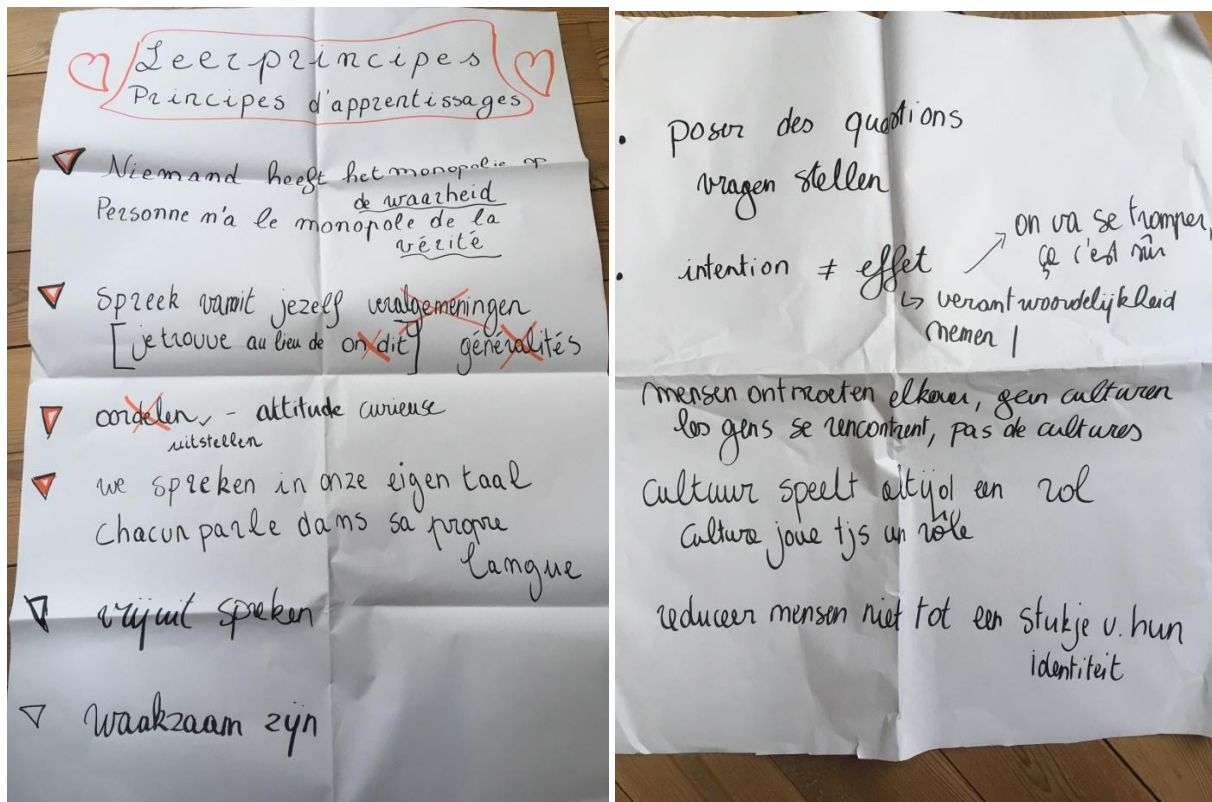 Leerprincipes
Principes d'apprentissages
Niemand heeft het monopolie op
de waarheid
Personne n'a le monopole de la
vérité
Spreek vanuit jezelf veralgemeningen
[je trouve au lieu de on dit] généralités
oordelen, - attitude curieuse
uitstellen
we spreken in onze eigen taal
Chacun parle dans sa propre
langue
vrijuit spreken
waakzaam zijn
• poser des questions
vragen stellen
• intention ≠ effet → on va se tromper,
ça c'est sûr
↳ verantwoordelijkheid
nemen !
mensen ontmoeten elkaar, geen culturen
les gens se rencontrent, pas de cultures
cultuur speelt altijd een rol
culture joue tjs un rôle
reduceer mensen niet tot een stukje v. hun
identiteit